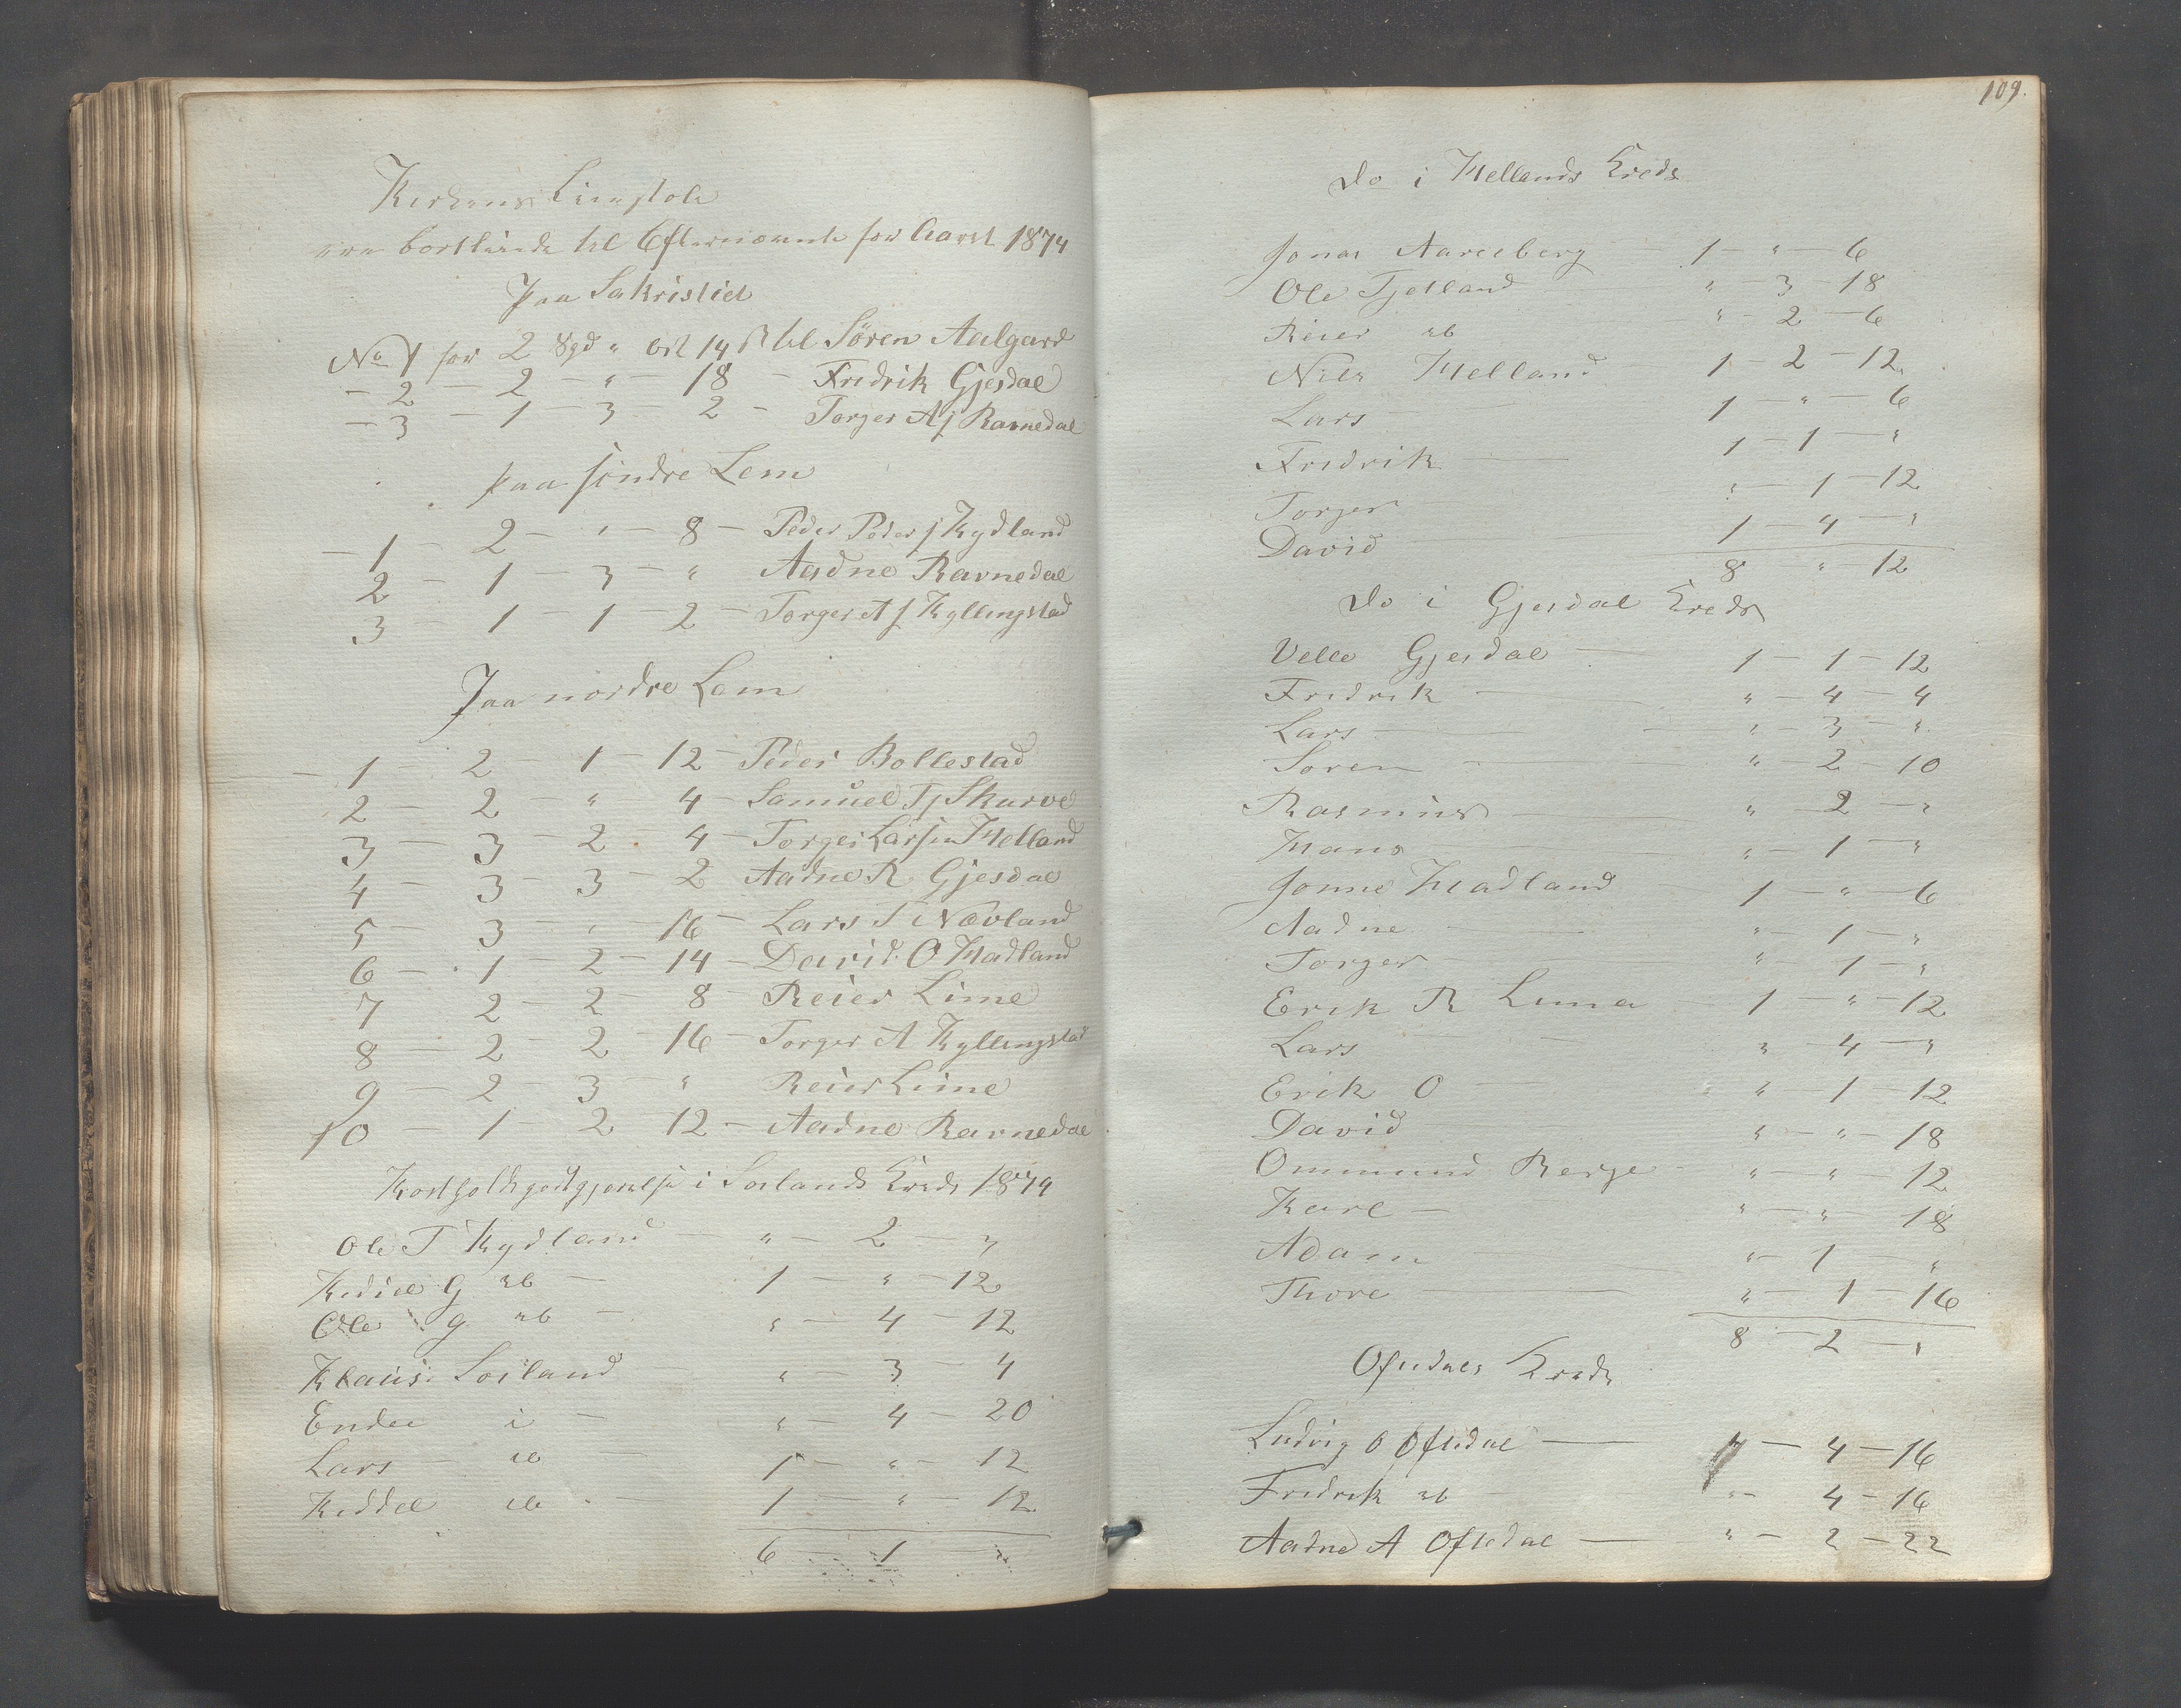 Kirkens Leiestole
ere bortleiede til Efternævnte for Aaret 1874
Paa Sakristiet
No 1 for 2 Spd " Ort 14 ß til Sören Aalgard
- 2 - 2 - " - 18 - Fredrik Gjesdal
- 3 - 1 - 3 - 2 - Torger A f Ravnedal
paa söndre Lem
- 1 - 2 - " - 8 - Peder Peders f Kydland
2 - 1 - 3 - " Aadne Ravnedal
3 - 1 - 1 - 2 - Torger A f Kyllingstad
Paa nordre Lem
- 1 - 2 - 1 - 12 - Peder Bollestad
2 - 2 - " 4 - Samuel T f Skurve
3 - 3 - 2 . 4 - Torger Larsen Helland
4 - 3 - 3 - 2 Aadne R Gjesdal
5 - 3 - " - 16 - Lars T Nævland
6 - 1 - 2 - 14 - David O Madland
7 2 - 2 - 8 - Reier Lime
8 - 2 - 2 - 16 - Torger A Kyllingstad
9 - 2 - 3 - " Reier Lime
10 - 1 - 2 - 12 - Aadne Ravnedal
i Soilands Kreds 1874
Ole T Kydland - " - 2 - "
Kediel G ib - 1 - " - 12
Ole G ib - " - 4 - 12
Klaus Soiland " - 3 - 4
Endre i - " - 4 - 20
Lars - ib - 1 - " - 12
Keddel ib - 1 - " - 12
6 - 1 - "
109.
Do i Hellands Kreds
Jonas Aareberg - 1 - " - 6
Ole Tjetland - " - 3 - 18
Reier ib " - 2 - 6
Nils Helland 1 - 2 - 12
Lars - 1 - " - 6
Fredrik - 1 - 1 - "
Torger - " - 1 - 12
David - 1 - 4 - "
8 - " - 12
Do i Gjesdal Kreds
Velle Gjesdal - 1 - 1 - 12
Fredrik - " - 4 - 4
Lars - " - 3 - "
Soren - " - 2 - 10
Rasmus - " - 2 - "
Hans - " - 1 - "
Jonne Madland - 1 - " - 6
Aadne - " - 1 - "
Torger - " - 1 - "
Erik R Lima 1 - " - 12
Lars - " - 4 - "
Erik O - " - 1 - 12
David - " - " - 18
Ommund Berge - " - " - 12
Karl - " - " - 18
Adam - " - 1 - "
Thore - " - 1 - 16
8 - 2 - "
Oftedals Kreds
Ludvig O Oftedal - " - 4 - 16
Fredrik ib - " - 4 - 16
Aadne A Oftedal - " - 2 - 22